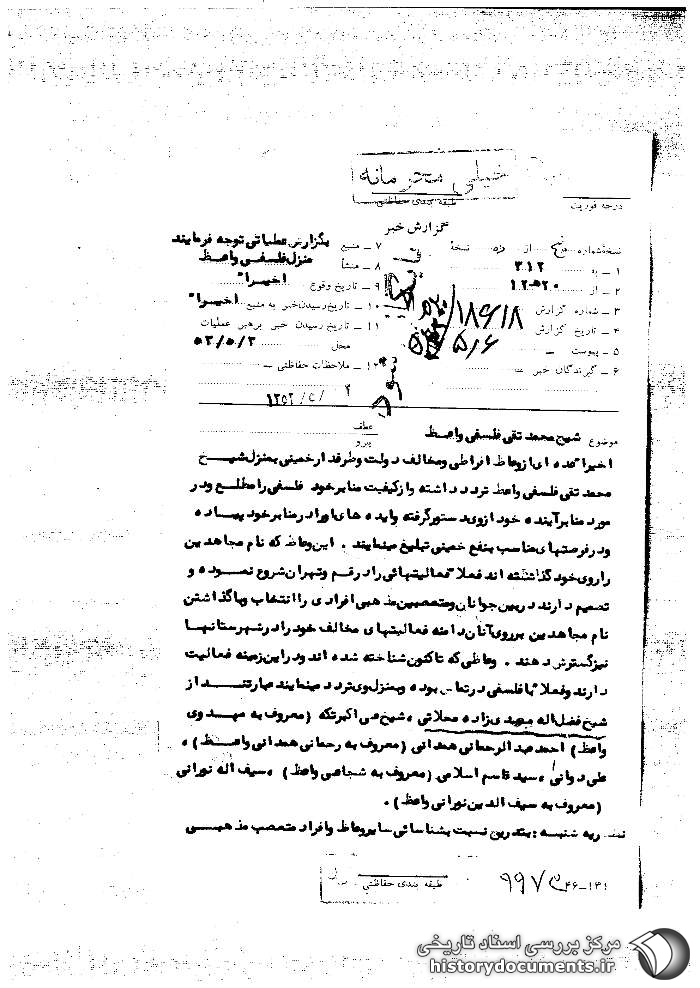 خیلی محرمانه
طبقه بندی حفاظتی
درجه فوریت
گزارش خبر
نسخه شماره از نسخه
۱ – به ۳۱۲
۲ – از ۲۰ ۵۲۰ ۱۲
۳ – شماره گزارش ۱۸۶۱۸
۴ – تاریخ گزارش ۵/۶
۵ – پیوست –
۶ – گیرندگان خبر –
۷ – منبع بگزارش عطیاتی توجه فرمایند
۸ – منشأ منزل فلسفی واعظ
۹ – تاریخ وقوع اخیراً
۱۰ – تاریخ رسیدن خبر به منبع اخیراً
۱۱ – تاریخ رسیدن خبر برهبر عملیات
محل ۵۳/۵/۳
۱۲ – ملاحظات حفاظتی –
موضوع شیخ محمد تقی فلسفی واعظ
عطف
پیرو
اخیراً عده ای از وعاظ افراطی و مخالف دولت و طرفدار خمینی بمنزل شیخ
محمد تقی فلسفی واعظ تردد داشته و از کیفیت منابر خود فلسفی را مطلع و در
مورد منابر آینده خود از وی دستور گرفته و ایده های او را در منابر خود پیاده
و در فرصتهای مناسب بنفع خمینی تبلیغ مینمایند . این وعاظ که نام مجاهدین
را روی خود گذاشته اند فعلاً فعالیتهائی را در قم و تهران شروع نموده و
تصمیم دارند در بین جوانان و متعصبین مذهبی افرادی را انتخاب و با گذاشتن
نام مجاهدین بر روی آنان دامنه فعالیتهای مخالف خود را در شهرستانها
نیز گسترش دهند . وعاظی که تاکنون شناخته شده اند و در این زمینه فعالیت
دارند و فعلاً با فلسفی در تماس بوده و بمنزل وی تردد مینمایند عبارتند از
شیخ فضل اله مهدی زاده محلاتی ، شیخ علی اکبر تکه (معروف به مهدوی
واعظ) احمد عبدالرحمانی همدانی (معروف به رحمانی همدانی واعظ) ،
علی دوانی ، سید قاسم اسلامی (معروف به شجاعی واعظ) ، سیف اله نورانی
(معروف به سیف الدین نورانی واعظ) .
نظریه شنبه : بنظر این نسبت بشناسائی سایر وعاظ و افراد متعصب مذهبی
طبقه بندی حفاظتی
۴۶–۱۳۱
۹۹۷
مرکز بررسی اسناد تاریخی
historydocuments.ir